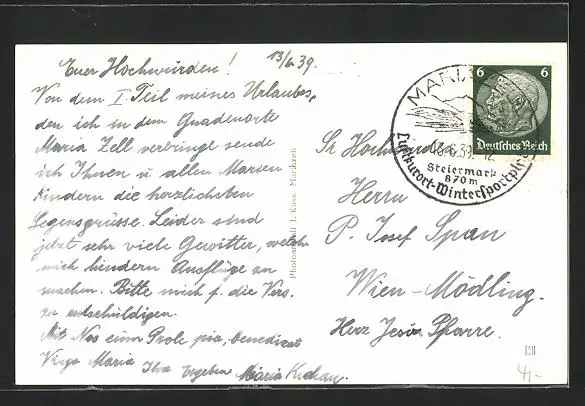 Euer Hochwürden! 13/6.39.
Von dem I. Teil meines Urlaubes,
den ich in dem Gnadenorte
Maria Zell verbringe sende
ich Ihnen u allen Marien
Kindern die herzlichsten
Segensgrüsse. Leider sind
jetzt sehr viele Gewitter, welche
mich hindern Ausflüge zu
machen. Bitte mich f. die Vers.
zu entschuldigen.
Mit Nos cum Prole pia, benedicat
Virgo Maria Ihre Ergebene Maria
Photoverlag J. Kuss, Mariazell
6 6
Deutsches Reich
MARIAZELL
13.6.39.-12
Steiermark
870 m
Luftkurort-Wintersportplatz
Sr Hochwürden
Herrn
P. Josef Span
Wien-Mödling.
Herz Jesu Pfarre.
4,-